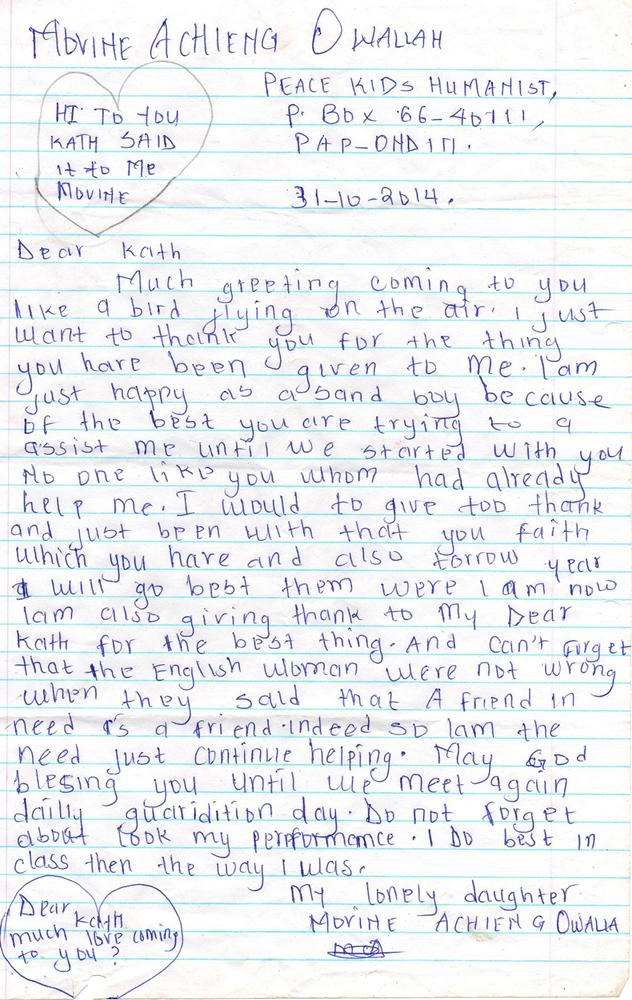 MOVINE ACHIENG OWALLAH
HI TO YOU
KATH SAID
it to ME
MOVINE
PEACE KIDS HUMANIST,
P. BOX 66-40111,
PAP-ONDITI.
31-10-2014.
Dear Kath
Much greeting coming to you
like a bird flying on the air. I just
want to thank you for the thing
you have been given to me. I am
just happy as a sand boy because
of the best you are trying to a
assist me until we started with you
No one like you whom had already
help me. I would to give too thank
and just been with that you faith
which you have and also forrow year
I will go best them were I am now
Iam also giving thank to My Dear
Kath for the best thing. And can't forget
that the English woman were not wrong
when they said that A friend in
need is a friend indeed so Iam the
need just continue helping. May God
blesing you until we meet again
dailly guaridition day. Do not forget
about look my performance. I Do best in
class then the way I was.
My lonely daughter
MOVINE ACHIENG OWALLA
Dear
Kath
much love coming
to you?